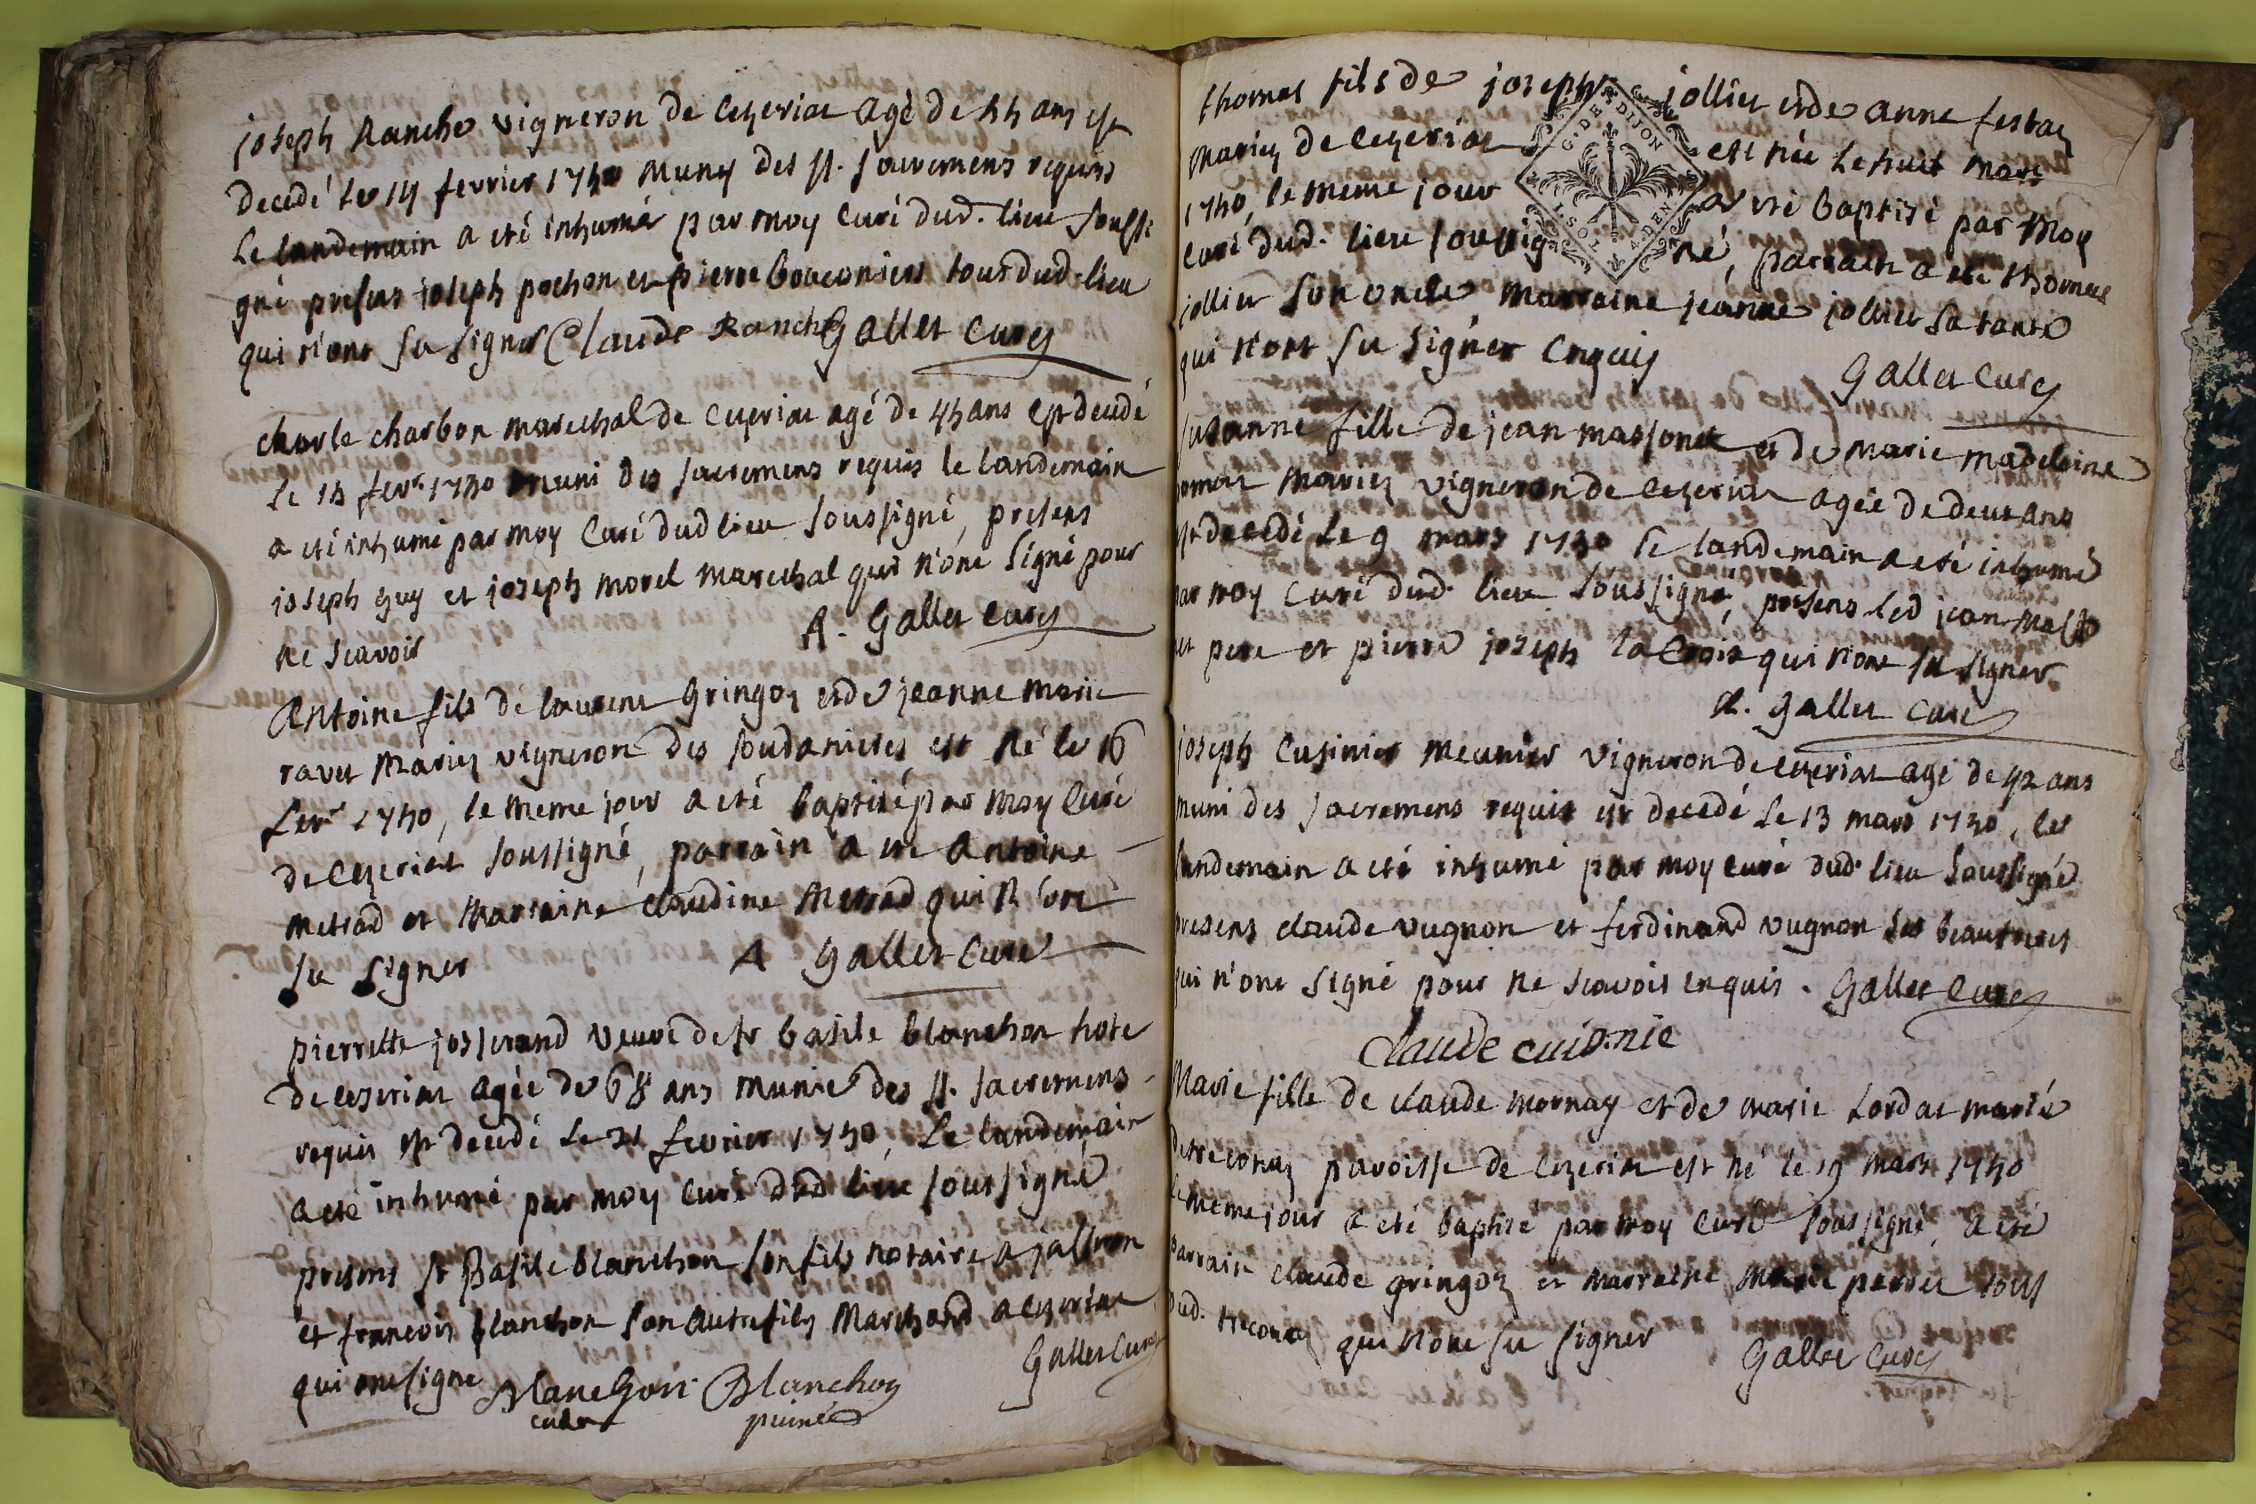 joseph Ranche vigneron de Cezeriat agé de ans est
decedé le 14 fevrier 1750 muny des SS. sacremens requis
Le landemain a eté inhumé par moy curé dud. lieu soussi
gné presens joseph pochon et pierre tous dud. lieu
qui n'ont su signer Claude Ranche Gallet curé
charle charbon marechal de Cezeriat agé de ans est decedé
le 15 fevr 1750 muni des sacremens requis le landemain
a eté inhumé par moy Curé dud lieu soussigné, presens
joseph guy et joseph morel marechal qui n'ont signé pour
ne scavoir A. Gallet curé
Antoine fils de laurent Gringoz et de jeanne marie
ravet mariez vigneron des soudanieres est né le 16
fevr 1750, le meme jour a eté baptisé par moy Curé
de Cezeriat soussigné, parrain a eté Antoine
metrad et marraine claudine metrad qui n'ont
su signer A Gallet Curé
pierrette josserand veuve de sr basile blanchon hote
de cezeriat agée de 68 ans munie des SS. sacremens
requis est decedé le 21 fevrier 1750, Le landemain
a eté inhumé par moy curé dud lieu soussigné
presens sr Basile blanchon son fils notaire a jasseron
et francois blanchon son autre fils marchand a cezeriat
qui ont signé Blanchon Blanchon Gallet Curé
puiné
thomas fils de joseph jollier et de anne
G. DE DIJON
mariez de Cezeriat est née le huit mars
1750, le meme jour a eté baptisé par moy
curé dud. lieu soussigné, parrain a eté thomas
jollier son oncle, marraine jeanne jollier sa tante
qui n'ont su signer enquis
Gallet Curé
suzanne fille de jean massonet et de marie madeleine
mariez vigneron de cezeriat agée de deux ans
est decedé le 9 mars 1750 le landemain a eté inhumé
par moy curé dud. lieu soussigné, presens led jean masso
net pere et pierre joseph la Croix qui n'ont su signer
A. Gallet Curé
joseph Cusinier meunier vigneron de cezeriat agé de 42 ans
muni des sacremens requis est decedé le 13 mars 1750, le
landemain a eté inhumé par moy curé dud. lieu soussigné
presens claude vugnon et ferdinand vugnon ses beaufreres
qui n'ont signé pour ne scavoir enquis. Gallet Curé
claude cuisnie
Marie fille de claude mornay et de marie tordat marié
de treconaz paroisse de cezeriat est né le 19 mars 1750
le meme jour a eté baptisé par moy curé soussigné, a eté
parrain claude gringoz et marraine marie perret tous
dud. treconaz qui n'ont su signer Gallet Curé